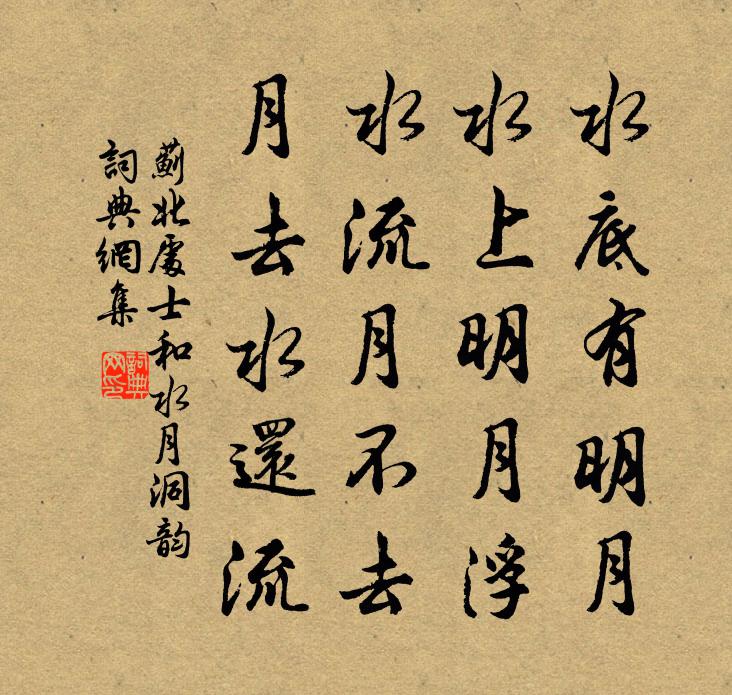 水底有明月
水上明月浮
水流月不去
月去水還流
薊北處士和水月洞韵
詞典網集
詞典
网印